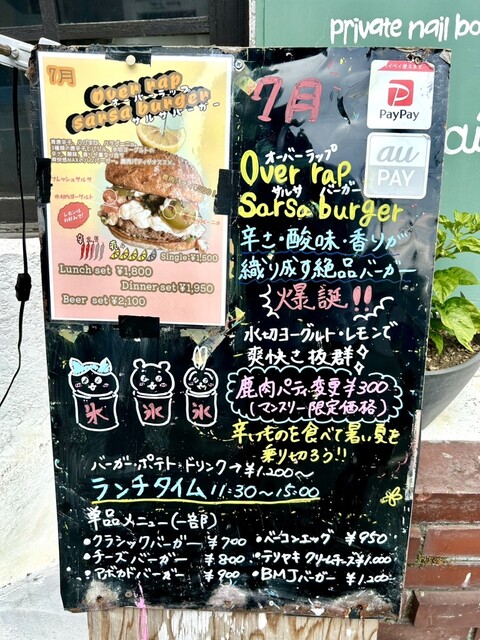 private nail bo
7月
Over rap
オーバーラップ
sarsa burger
サルサバーガー
フレッシュサルサ
水切りヨーグルト
Single:¥1,500
Lunch set ¥1,800
Dinner set ¥1,950
Beer set ¥2,100
7月
PayPay
au
PAY
オーバーラップ
Over rap
サルサ バーガー
Sarsa burger
辛さ・酸味・香りが
織り成す絶品バーガー
爆誕!!
水切ヨーグルト・レモンで
爽快さ抜群
鹿肉パティ変更¥300
(マンスリー限定価格)
辛いものを食べて暑い夏を
乗り切ろう!!
氷 氷 氷
バーガー・ポテト・ドリンク→¥1.200~
ランチタイム 11:30~15:00
単品メニュー(一部)
・クラシックバーガー ¥700
・チーズバーガー ¥800
・アボカドバーガー ¥900
・ベーコンエッグ ¥950
・テリヤキクリームチーズ¥1.000
・BMJバーガー ¥1.200